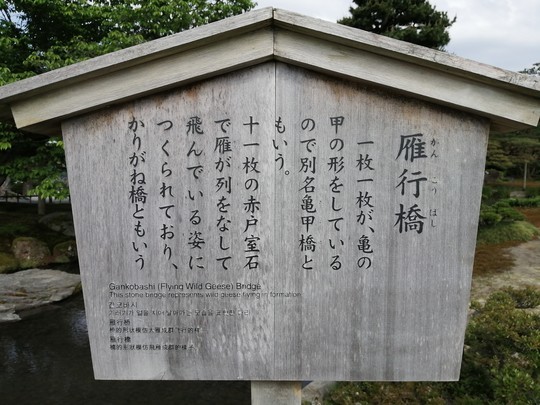 雁行橋
一枚一枚が、亀の
甲の形をしている
ので別名亀甲橋と
もいう。
十一枚の赤戸室石
で雁が列をなして
飛んでいる姿に
つくられており、
かりがね橋ともいう
Gankobashi (Flying Wild Geese) Bridge
This stone bridge represents wild geese flying in formation.
간코바시
기러기가 열을 지어 날아가는 모습을 표현한 다리
雁行桥
雁行橋